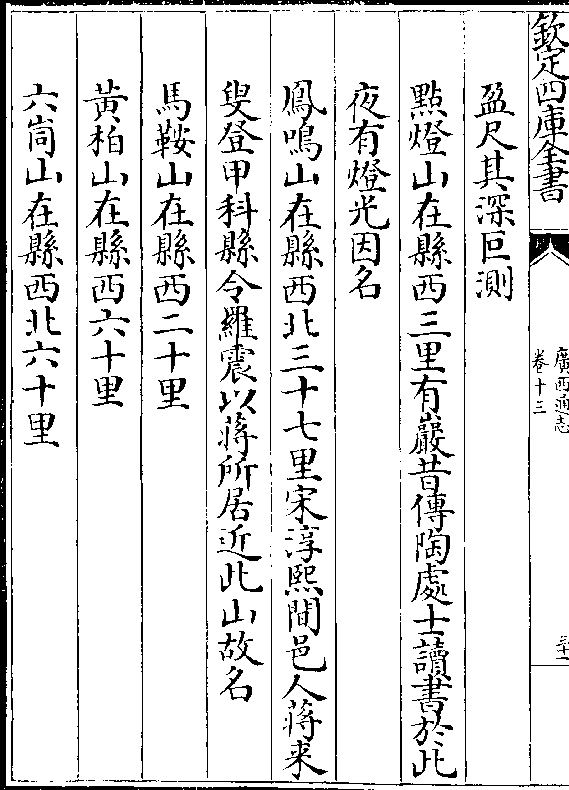 欽定四庫全書
廣西通志
卷十三
盈尺其深叵測
點燈山在縣西三里有巖昔傳陶處士讀書於此
夜有燈光因名
鳳鳴山在縣西北三十七里宋淳熙間邑人蔣来
叟登甲科縣令羅震以蔣所居近此山故名
馬鞍山在縣西二十里
黃柏山在縣西六十里
六峝山在縣西北六十里